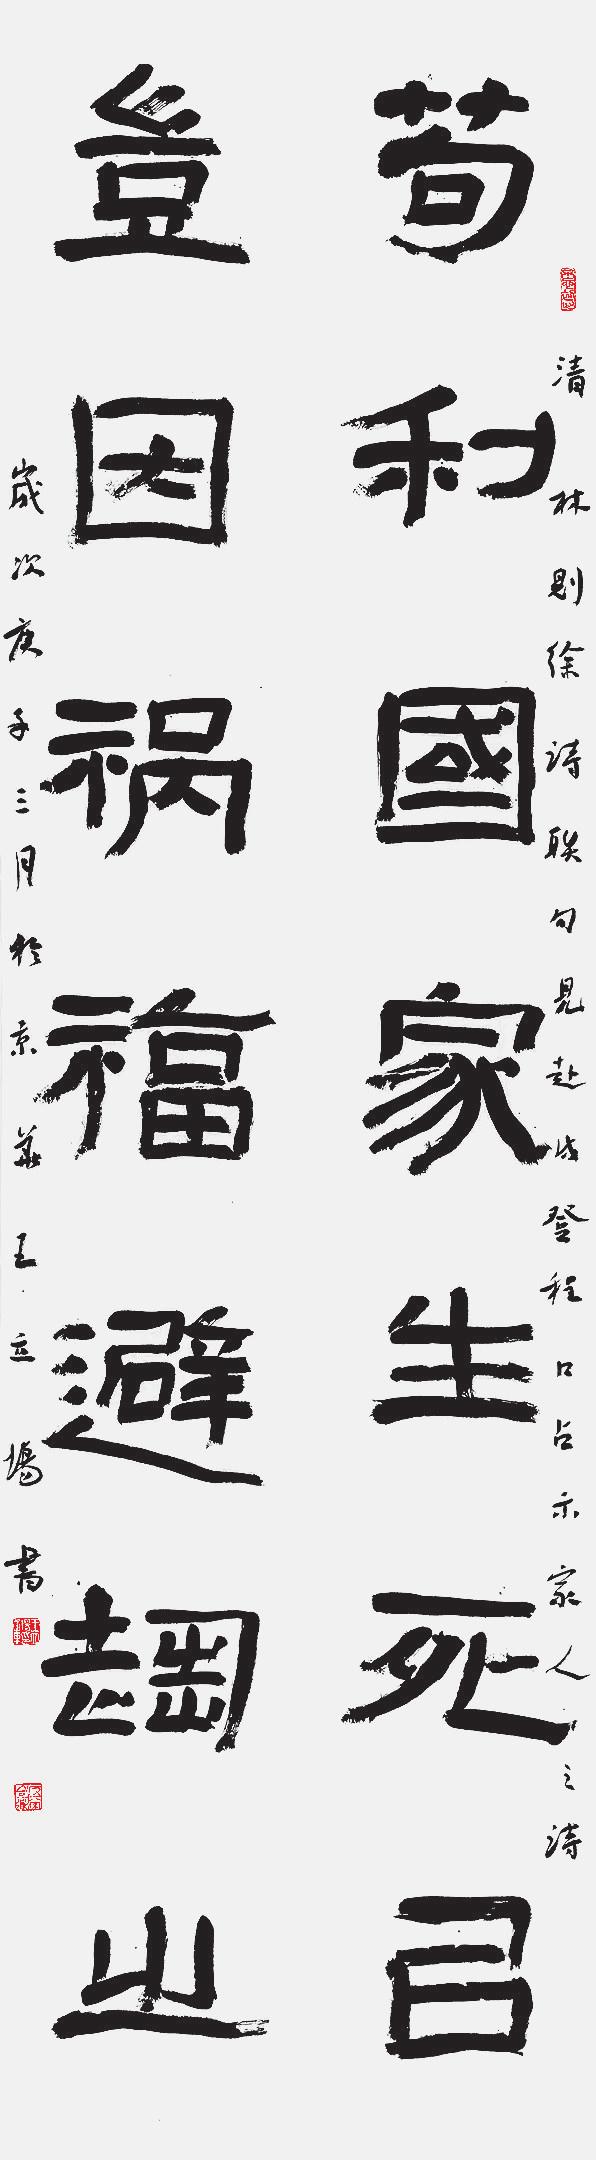 清林則徐詩联句見赴戍登程口占示家人之詩
苟利國家生死㠯
豈因祸福避趨之
歲次庚子三月於京華王立場書